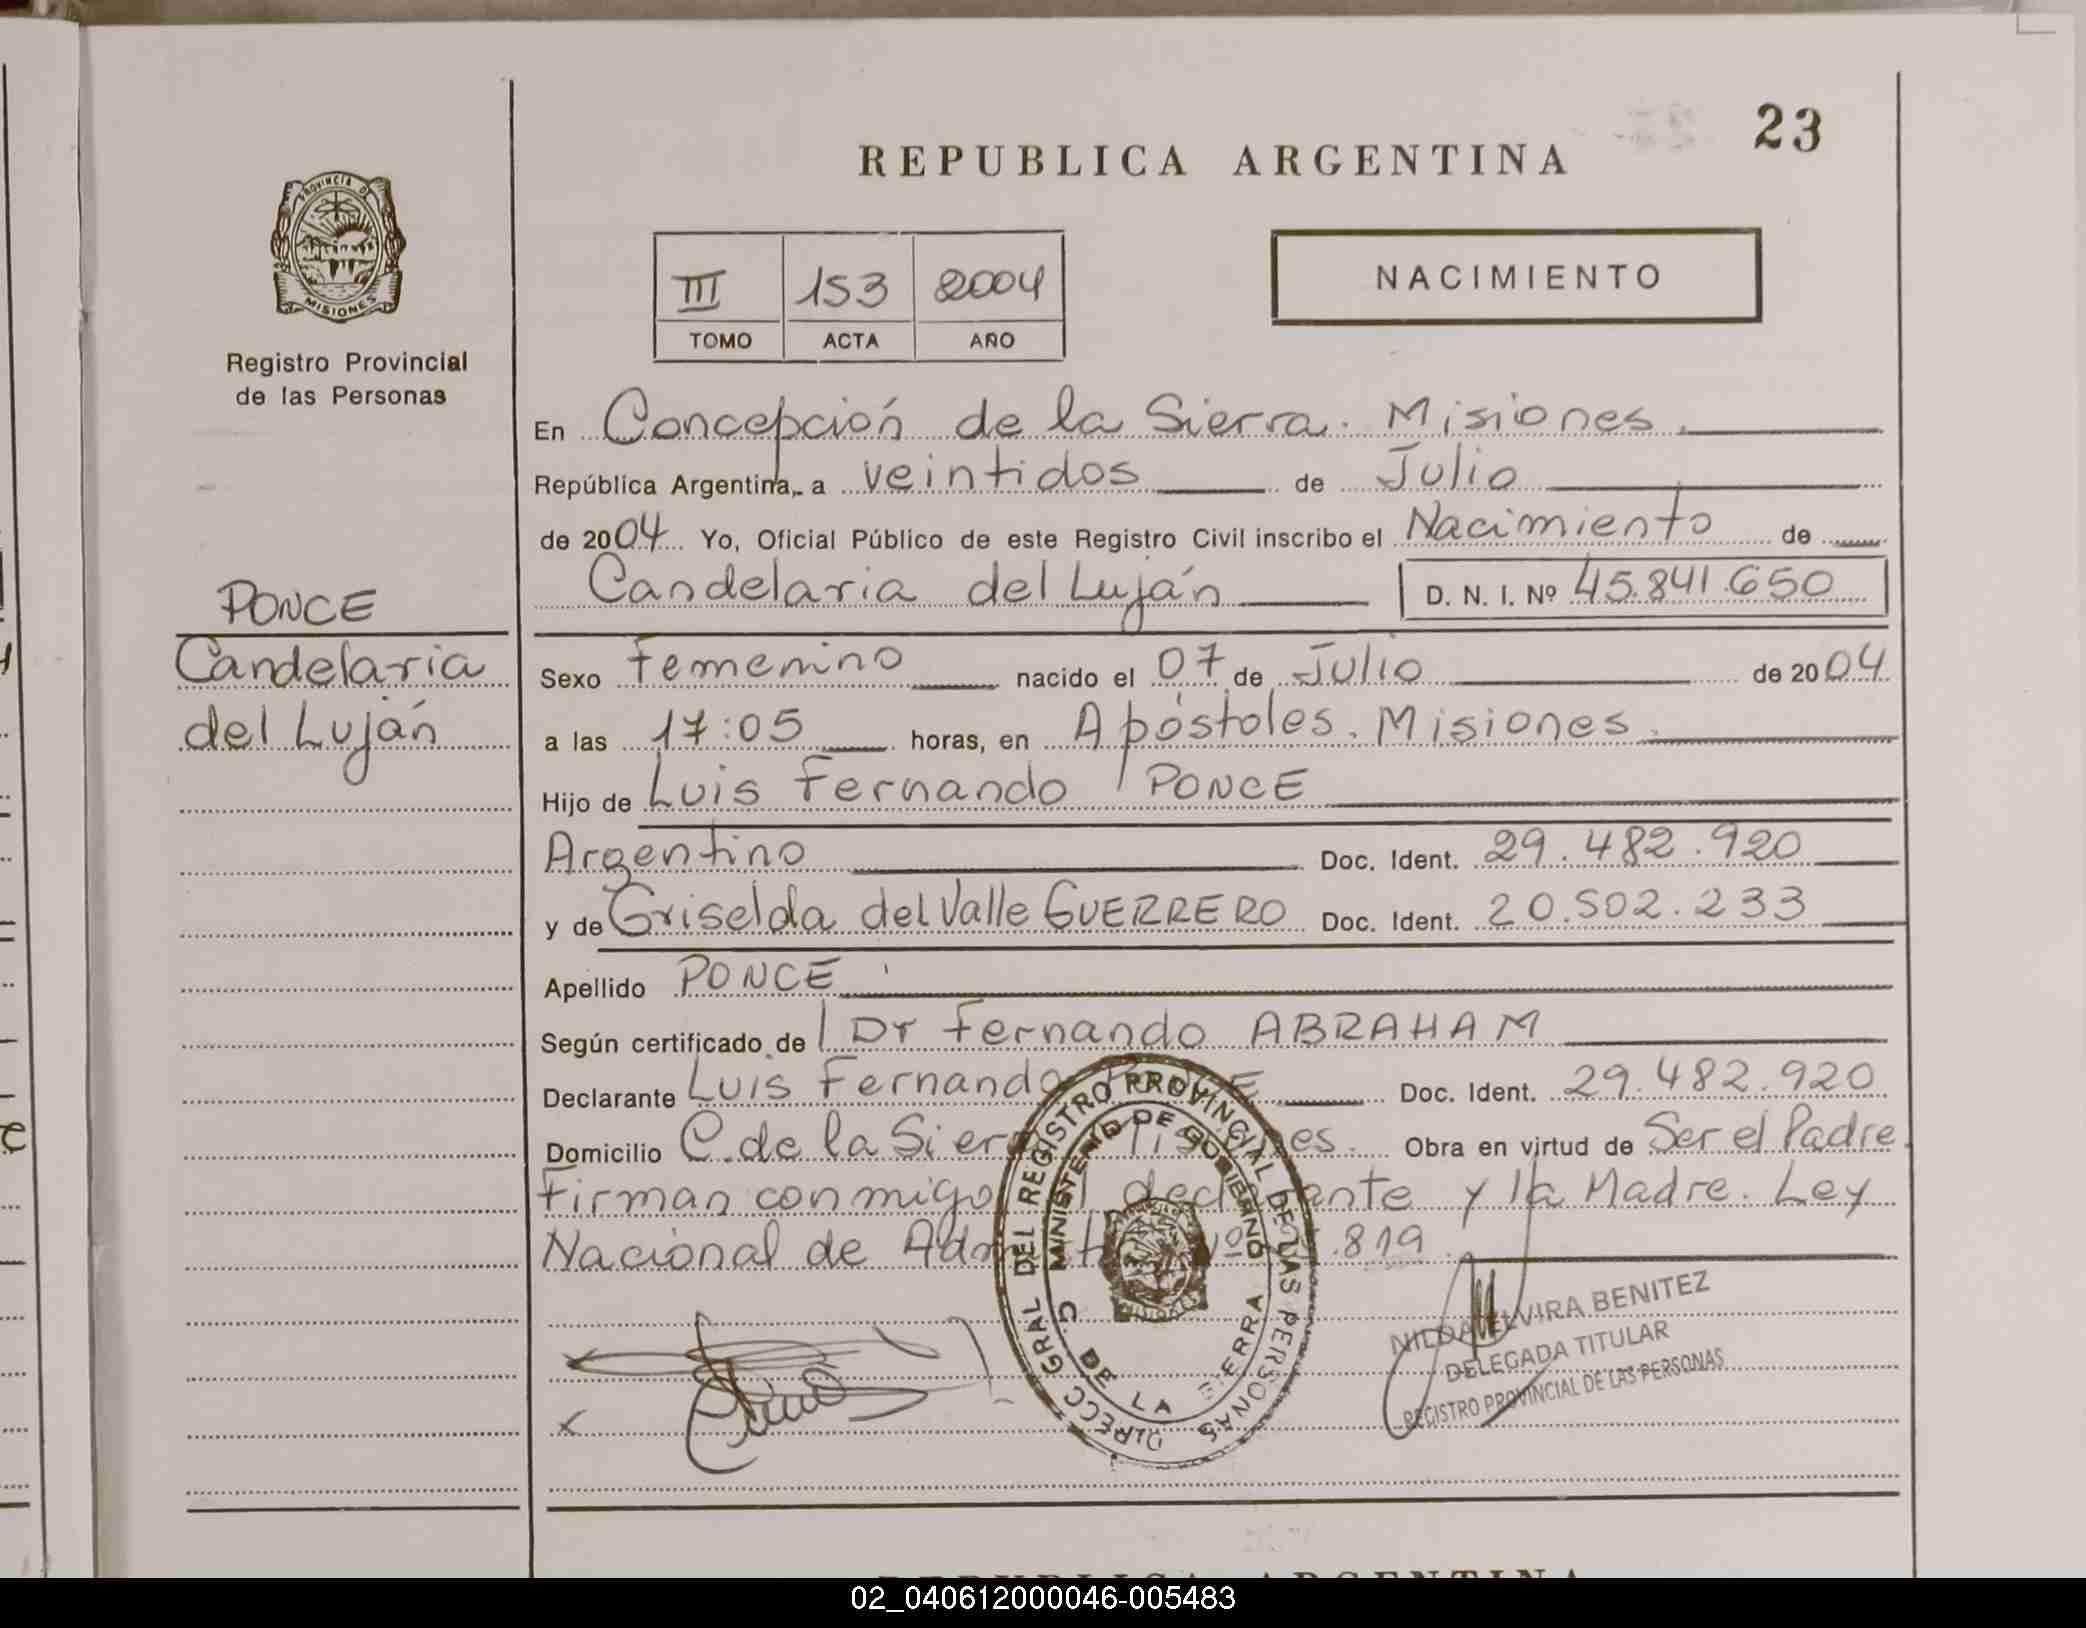 23
REPUBLICA ARGENTINA
PROVINCIA DE
MISIONES
Registro Provincial
de las Personas
III 153 2004
TOMO ACTA AÑO
NACIMIENTO
En Concepción de la Sierra. Misiones.
República Argentina, a veintidos de Julio
de 2004 Yo, Oficial Público de este Registro Civil inscribo el Nacimiento de
Candelaria del Luján D. N. I. Nº 45.841.650
PONCE
Candelaria
del Luján
Sexo Femenino nacido el 07 de Julio de 2004
a las 17:05 horas, en Apóstoles. Misiones.
Hijo de Luis Fernando PONCE
Argentino Doc. Ident. 29.482.920
y de Griselda del Valle GUERRERO Doc. Ident. 20.502.233
Apellido PONCE
Según certificado de Dr Fernando ABRAHAM
Declarante Luis Fernando Doc. Ident. 29.482.920
Domicilio C. de la Sierra Misiones. Obra en virtud de Ser el Padre.
Firman conmigo el declarante y la Madre. Ley
Nacional de Nº .819
DIRECC GRAL DEL REGISTRO PROVINCIAL DE LAS PERSONAS
MINISTERIO DE GOBIERNO
C. DE LA SIERRA
NILDA ELVIRA BENITEZ
DELEGADA TITULAR
REGISTRO PROVINCIAL DE LAS PERSONAS
REPUBLICA ARGENTINA
02_040612000046-005483